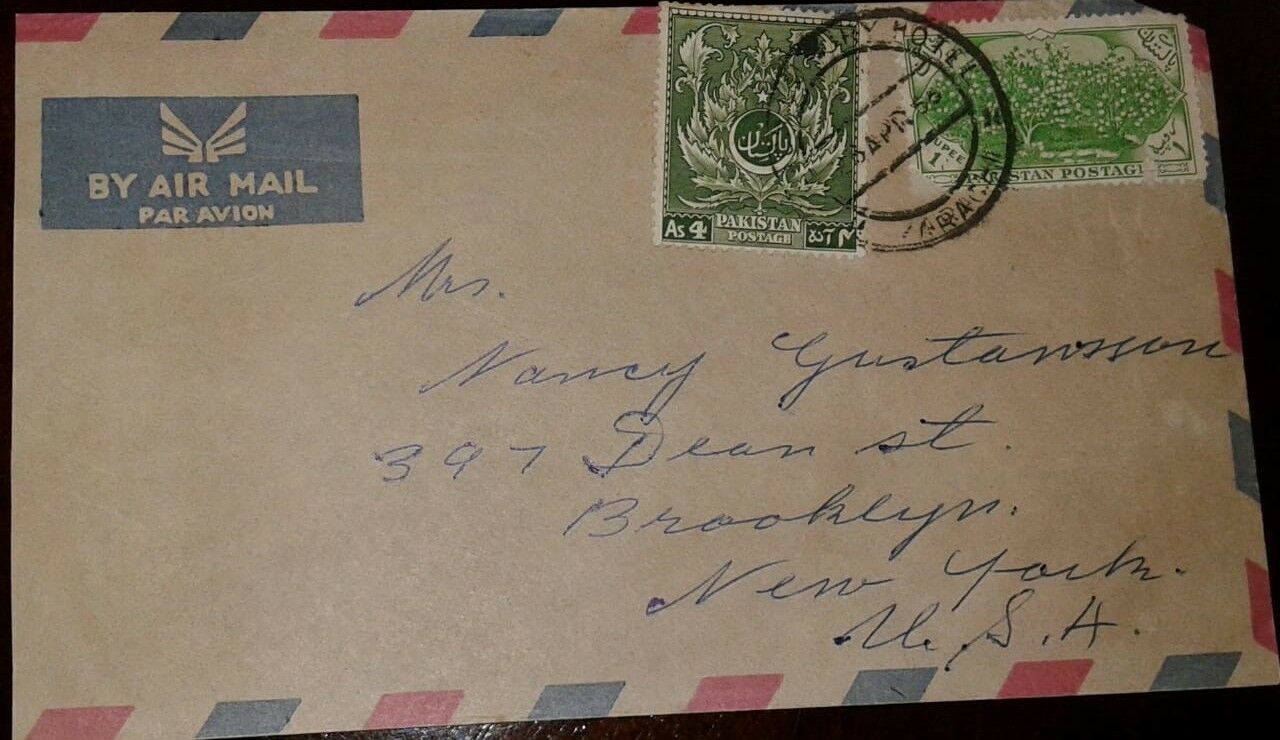 BY AIR MAIL
PAR AVION
پاکستان
As 4
PAKISTAN
POSTAGE
۴ آنہ
HOTEL
APR
KARACHI
پاکستان
RUPEE
1
PAKISTAN POSTAGE
۱
Mrs.
Nancy Gustavsson
397 Dean st.
Brooklyn.
New York.
U.S.A.